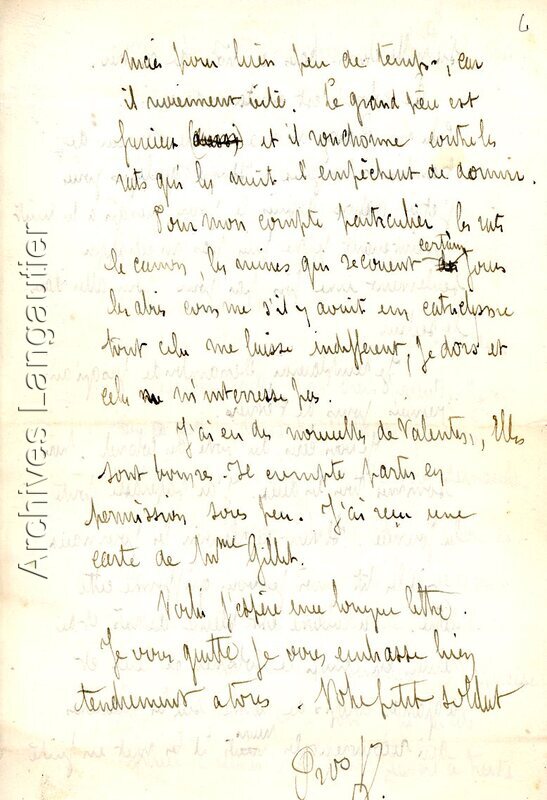 6
mais pour bien peu de temps, car
il reviennent vite. Le grand père est
furieux et il ronchonne contre les
rats qui la nuit l'empêchent de dormir.
Pour mon compte particulier, les rats
le canon, les mines qui secouent certains jours
les abris comme s'il y avait un cataclysme
tout cela me laisse indifferent, je dors et
cela ne m'interresse pas.
J'ai eu des nouvelles de Valentes, Elles
sont bonnes. Je compte partir en
permission sous peu. J'ai reçu une
carte de Mme Gillet.
Voilà j'espère une longue lettre.
Je vous quitte je vous embrasse bien
tendrement a tous. Votre petit soldat
Archives Langautier